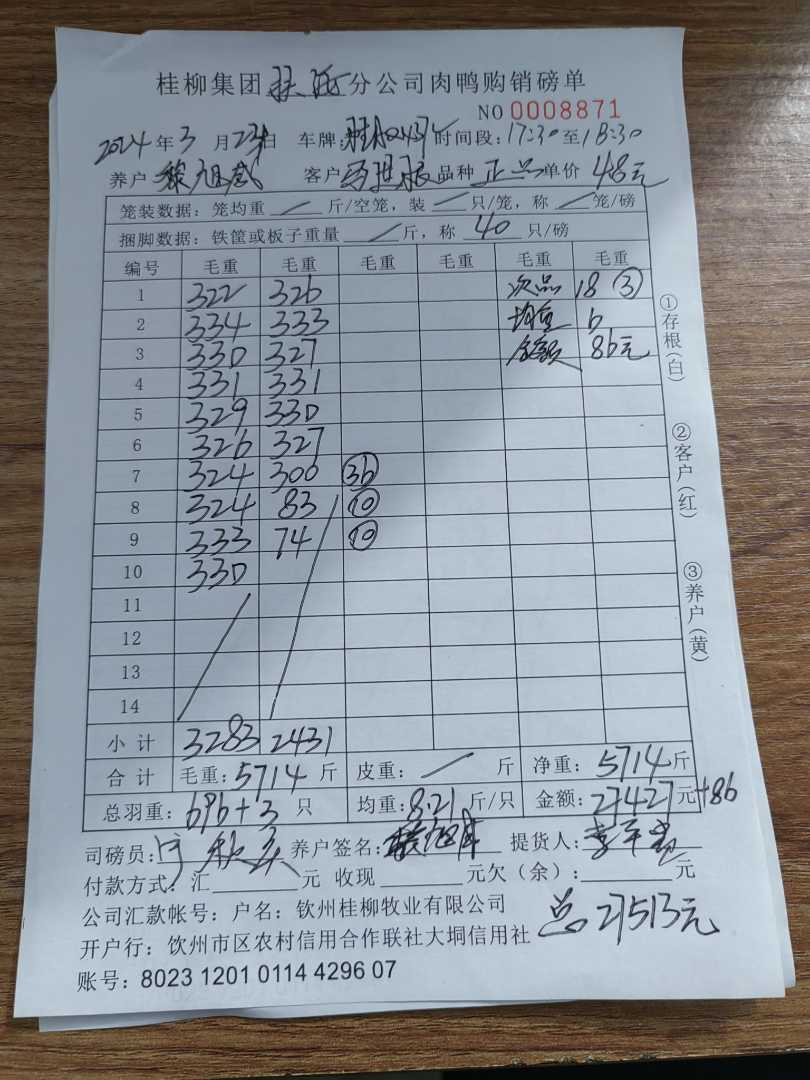 桂柳集团 分公司肉鸭购销磅单
NO 0008871
2024年3月23日 车牌: 时间段:17:30至18:30
养户 客户 品种 正品 单价 4.8元
笼装数据:笼均重 / 斤/空笼,装 / 只/笼,称 / 笼/磅
捆脚数据:铁筐或板子重量 / 斤,称 40 只/磅
编号 毛重 毛重 毛重 毛重 毛重 毛重
1 322 326 次品 18 ③
2 334 333 均重 6
3 330 327 金额 86元
4 331 331
5 329 330
6 326 327
7 324 300 36
8 324 83 ⑩
9 333 74 ⑩
10 330
11
12
13
14
小计 3283 2431
合计 毛重:5714斤 皮重: / 斤 净重:5714斤
总羽重:696+3只 均重:8.21斤/只 金额:27427元+86
司磅员: 养户签名: 提货人:
付款方式:汇 元 收现 元欠(余): 元
公司汇款帐号:户名:钦州桂柳牧业有限公司
总27513元
开户行:钦州市区农村信用合作联社大垌信用社
账号:8023 1201 0114 4296 07
①存根(白)
②客户(红)
③养户(黄)